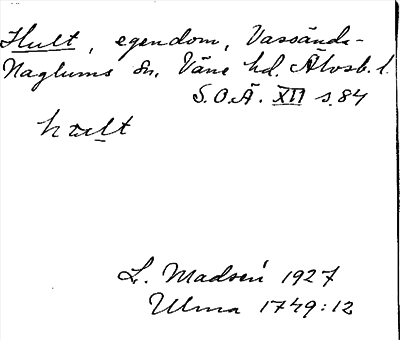 Hult, egendom, Vassända-
Naglums sn. Väne hd. Älvsb. l.
S.O.Ä. XII s. 84
L. Madsén 1927
Ulma 1749:12